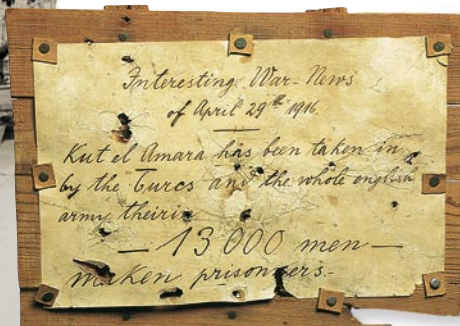 Interesting War-News
of April 29th 1916.
Kut el Amara has been taken in
by the Turcs and the whole english
army theirin
— 13 000 men —
maken prisoners.-